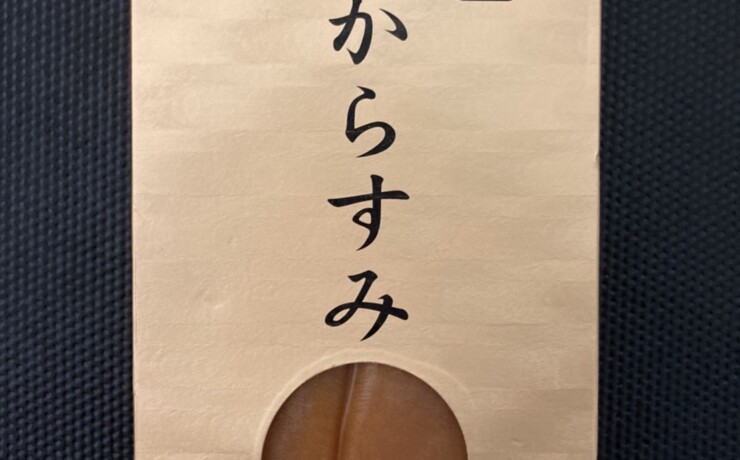 からすみ